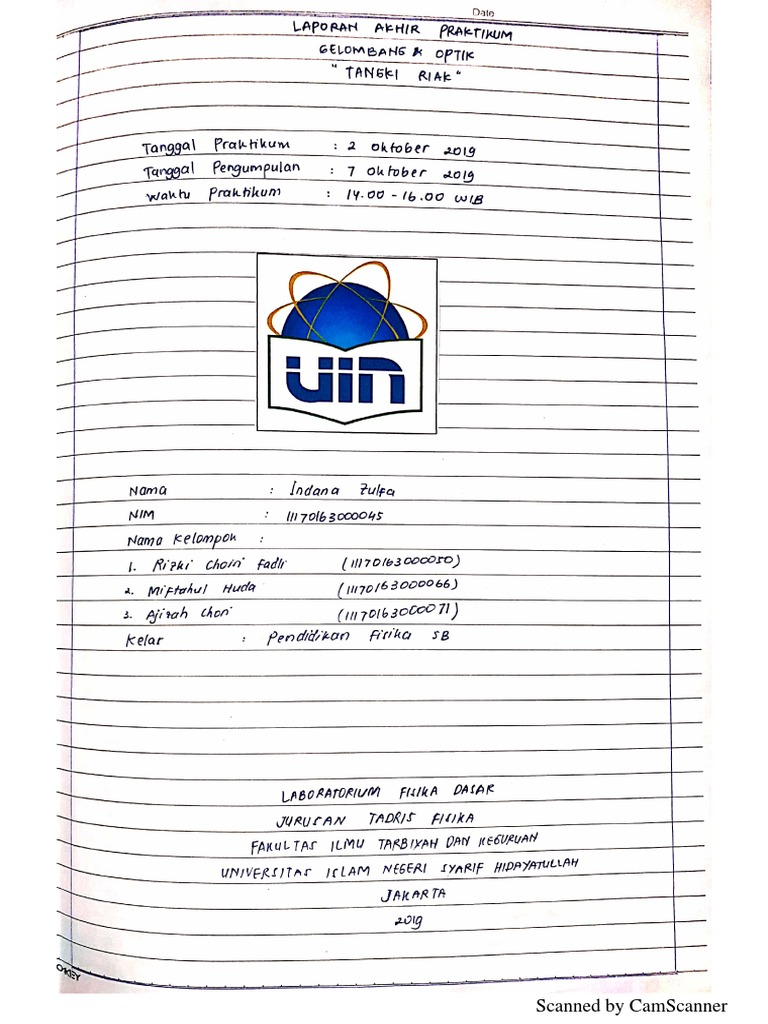 Date
LAPORAN AKHIR PRAKTIKUM
GELOMBANG & OPTIK
"TANGKI RIAK"
Tanggal Praktikum : 2 Oktober 2019
Tanggal Pengumpulan : 7 Oktober 2019
Waktu Praktikum : 14.00 - 16.00 WIB
uin
Nama : Indana Zulfa
NIM : 11170163000045
Nama Kelompok :
1. Rizki Choiri Fadli (11170163000050)
2. Miftahul Huda (11170163000066)
3. Ajizah Chori (11170163000071)
Kelas : Pendidikan Fisika 5B
LABORATORIUM FISIKA DASAR
JURUSAN TADRIS FISIKA
FAKULTAS ILMU TARBIYAH DAN KEGURUAN
UNIVERSITAS ISLAM NEGERI SYARIF HIDAYATULLAH
JAKARTA
2019
OKEY
Scanned by CamScanner